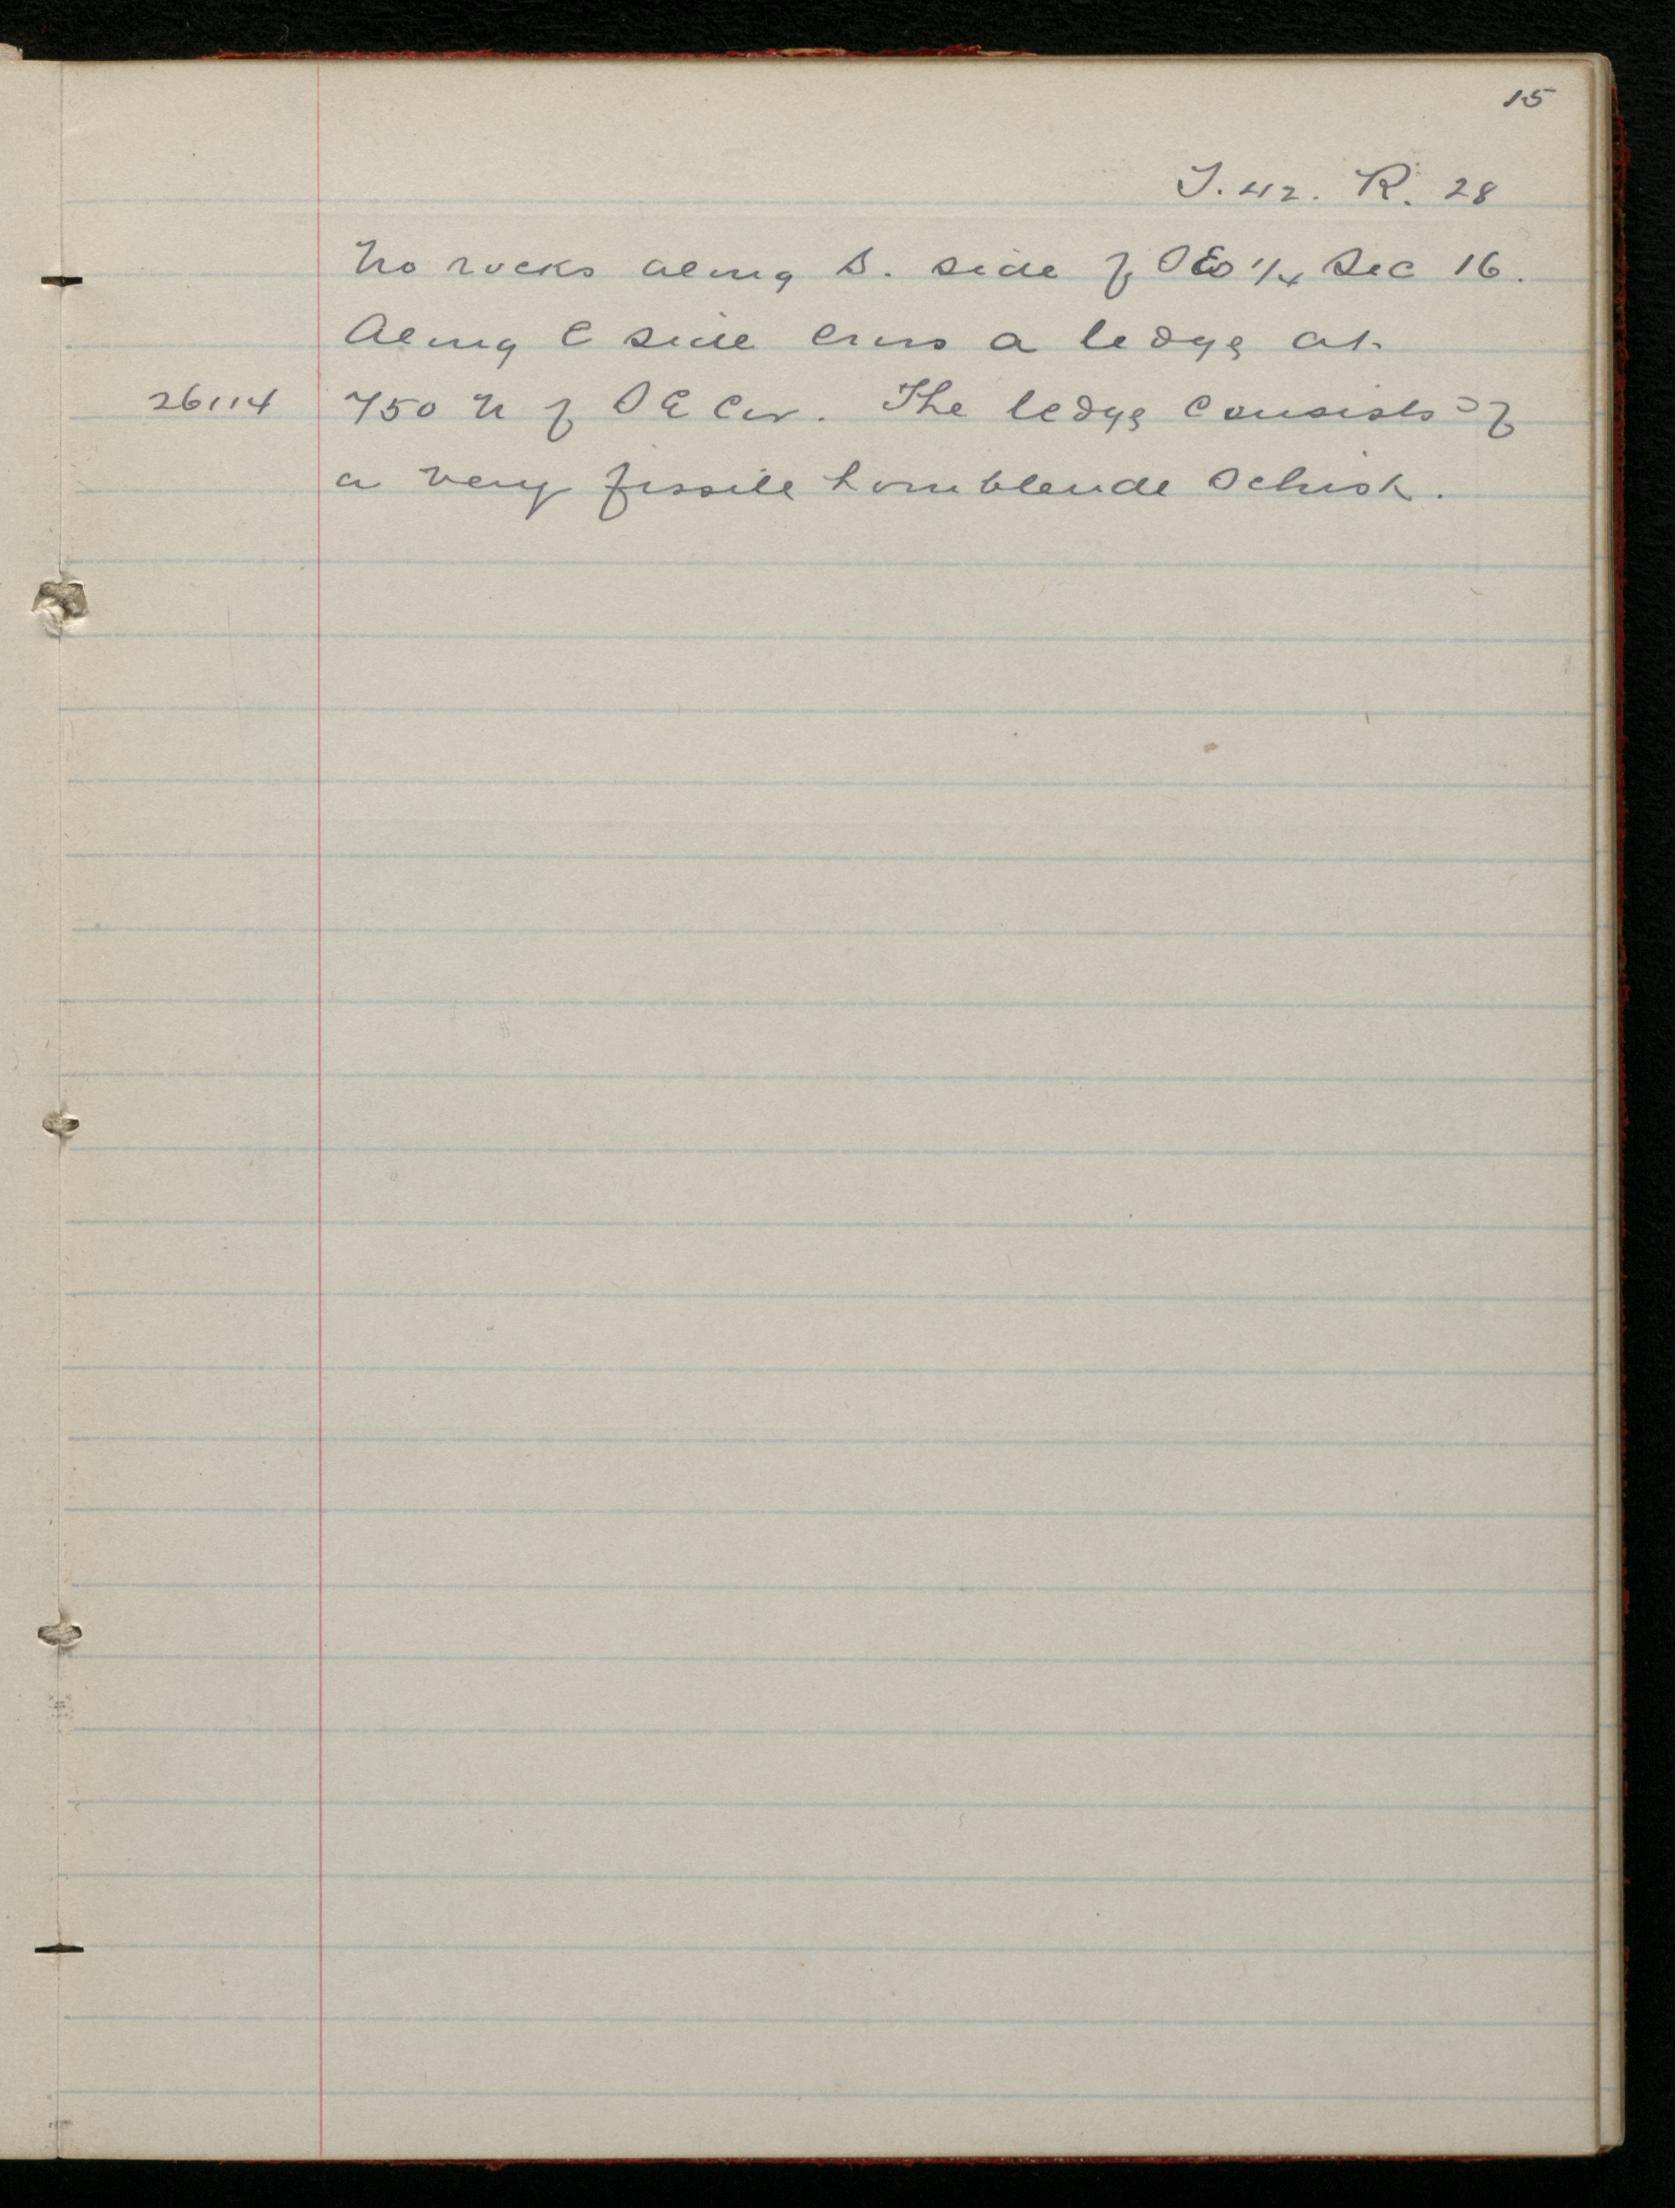 15
T. 42. R. 28
No rocks along S. side of SE 1/4 Sec 16.
Along E side cross a ledge at
26114 750 N of SE Cor. The ledge consists of
a very fissile hornblende schist.